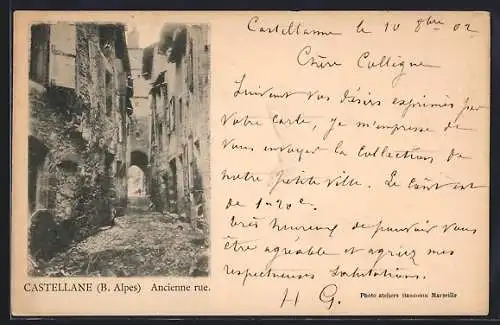 CASTELLANE (B. Alpes) Ancienne rue.
Castellane le 10 8bre 02
Chère Collègue
Suivant vos désirs exprimés par
votre Carte, je m'empresse de
vous envoyer la Collection de
notre petite ville. Le coût est
de 1.20c.
très heureux de pouvoir vous
être agréable et agréez mes
respectueuses salutations.
H G.
Photo ateliers Marseille